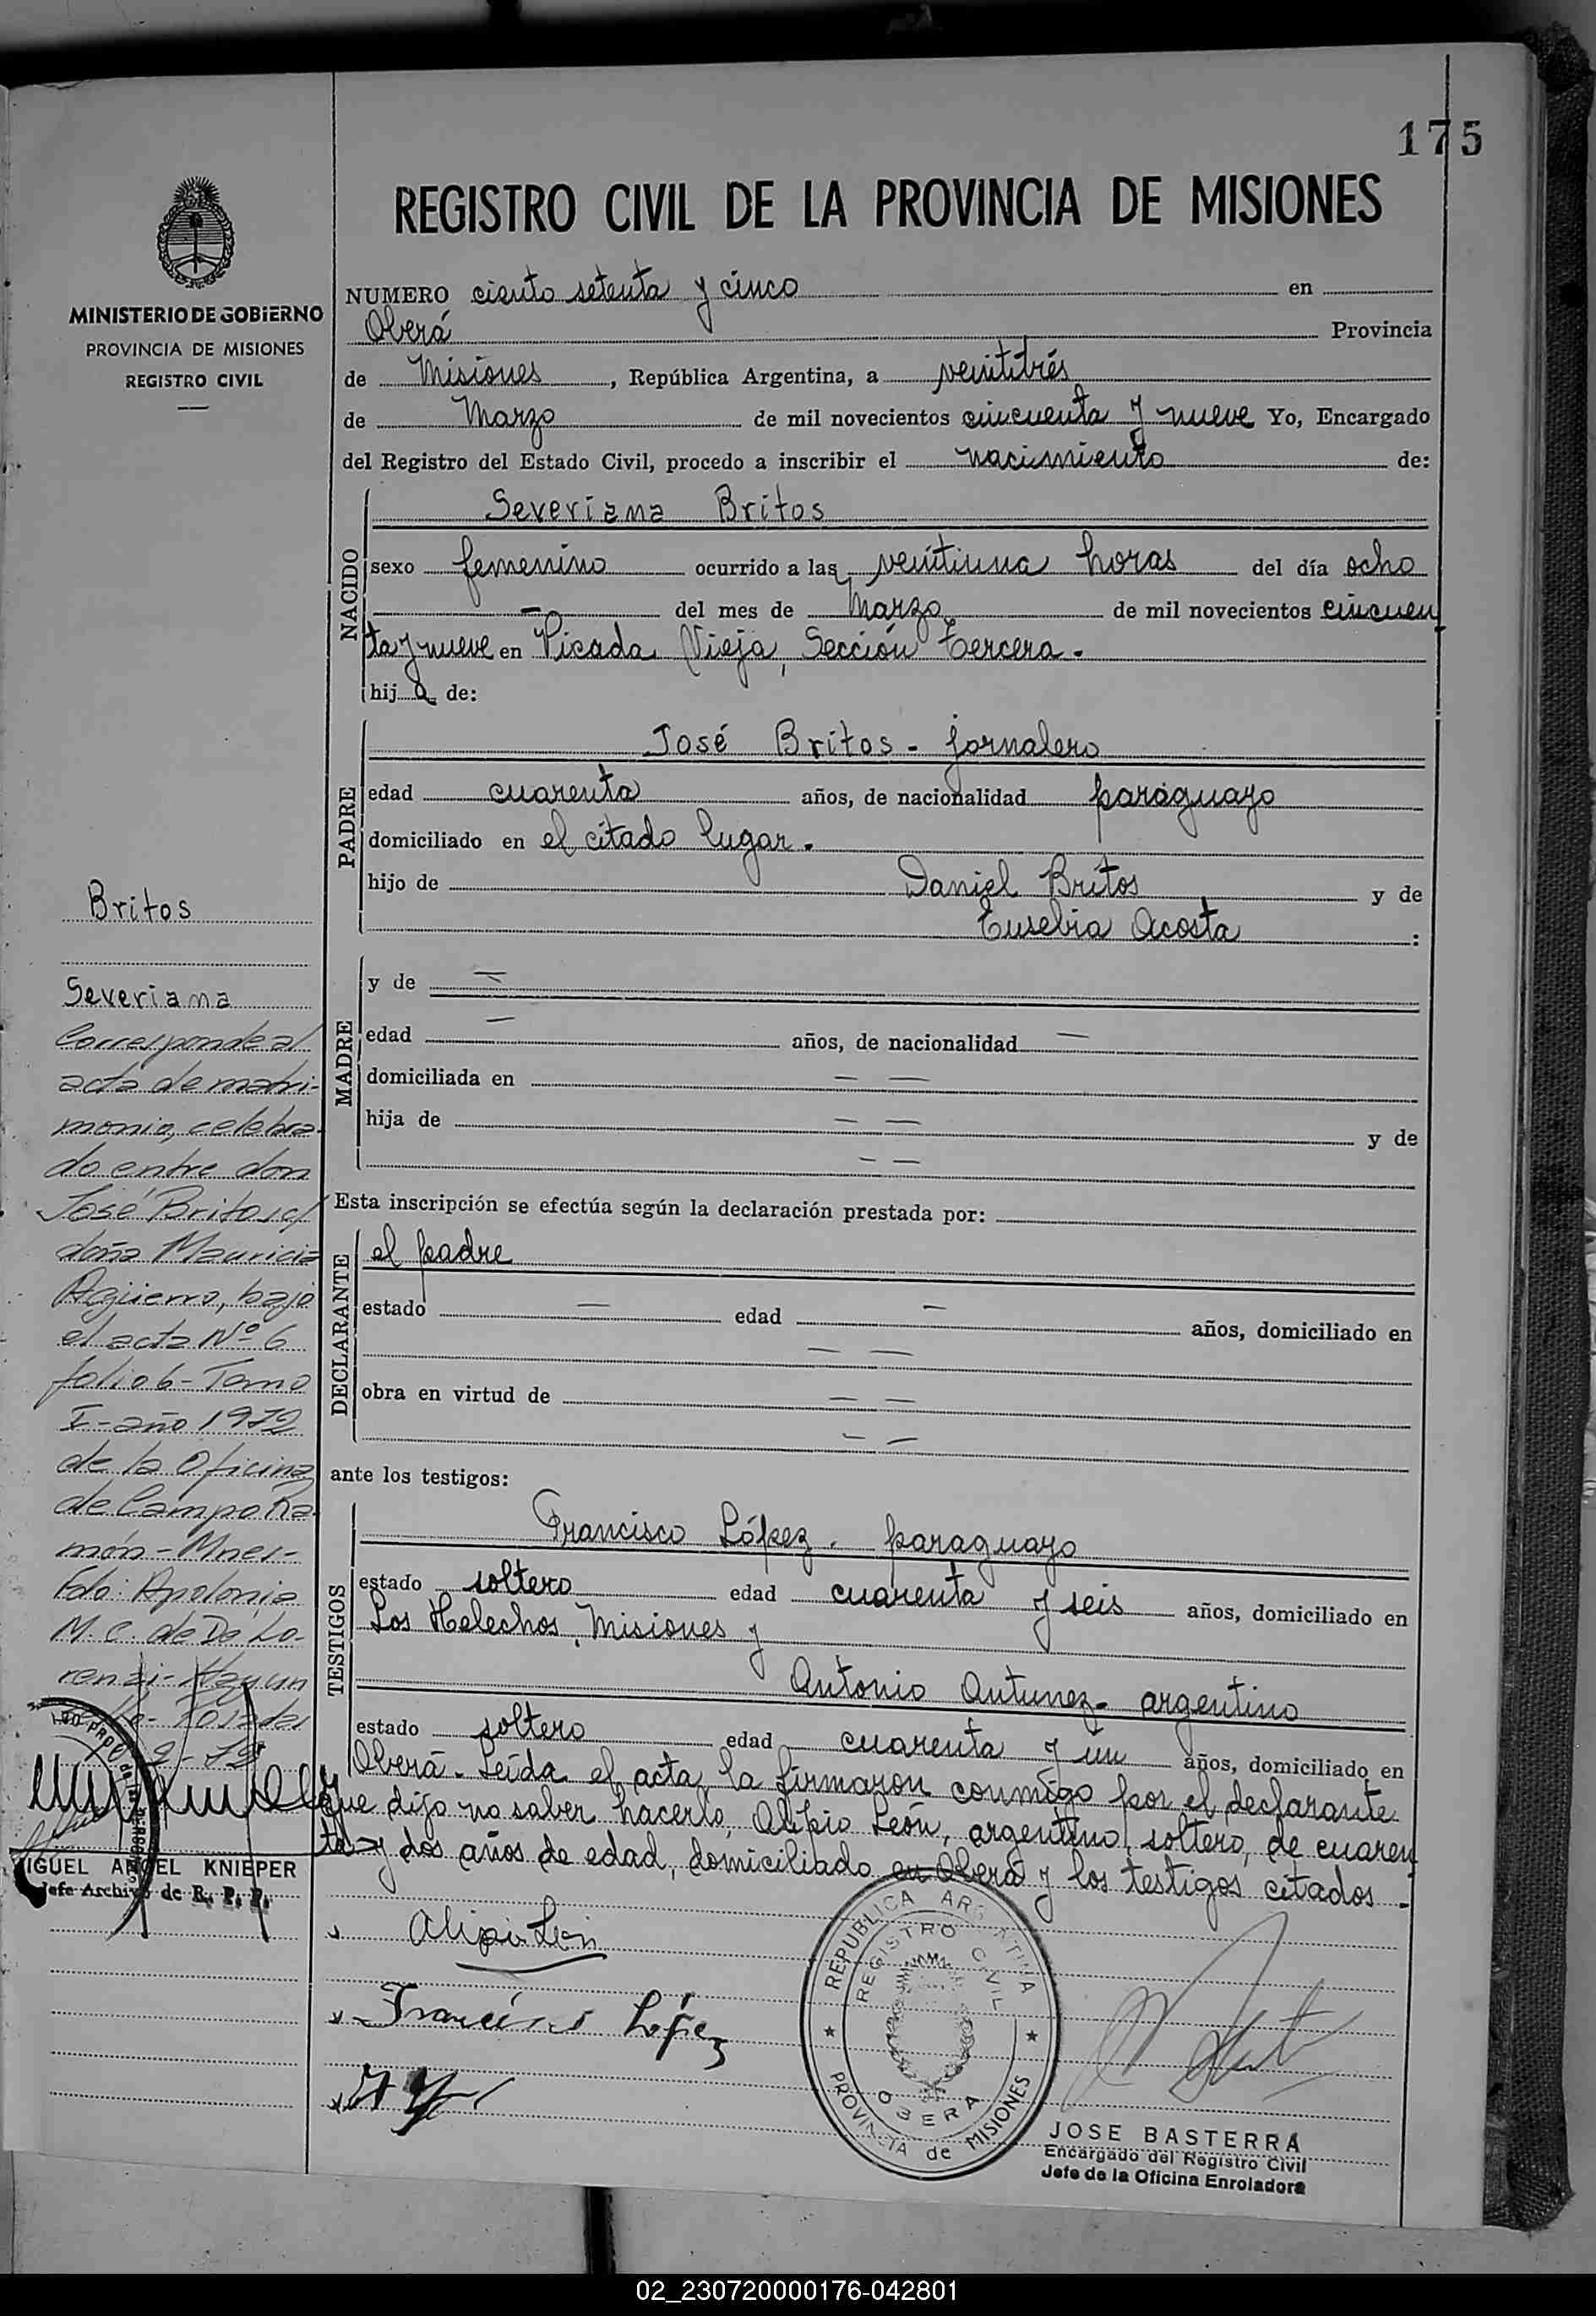 175
REGISTRO CIVIL DE LA PROVINCIA DE MISIONES
MINISTERIO DE GOBIERNO
PROVINCIA DE MISIONES
REGISTRO CIVIL
NUMERO ciento setenta y cinco en
Oberá Provincia
de Misiones, República Argentina, a veintitrés
de Marzo de mil novecientos cincuenta y nueve Yo, Encargado
del Registro del Estado Civil, procedo a inscribir el nacimiento de:
NACIDO
Severiana Britos
sexo femenino ocurrido a las veintiuna horas del día ocho
— del mes de Marzo de mil novecientos cincuen
ta y nueve en Picada Vieja, Sección Tercera.
hija de:
PADRE
José Britos - jornalero
edad cuarenta años, de nacionalidad paraguayo
domiciliado en el citado lugar.
hijo de Daniel Britos y de
Eusebia Acosta :
MADRE
y de —
edad — años, de nacionalidad —
domiciliada en — —
hija de — — y de
— —
Esta inscripción se efectúa según la declaración prestada por:
DECLARANTE
el padre
estado — edad — años, domiciliado en
— —
obra en virtud de — —
— —
ante los testigos:
TESTIGOS
Francisco López. paraguayo
estado soltero edad cuarenta y seis años, domiciliado en
Los Helechos, Misiones y
Antonio Antunez- argentino
estado soltero edad cuarenta y un años, domiciliado en
Oberá. Leída el acta, la firmaron conmigo por el declarante
que dijo no saber hacerlo, Alipio León, argentino, soltero, de cuaren
ta y dos años de edad, domiciliado en Oberá y los testigos citados.-
Alipio León
Francisco López
REPUBLICA ARGENTINA
REGISTRO CIVIL
OBERA
PROVINCIA de MISIONES
JOSE BASTERRA
Encargado del Registro Civil
Jefe de la Oficina Enroladora
Britos
Severiana
Corresponde al
acta de matri-
monio, celebra-
do entre don
José Britos c/
doña Mauricia
Agüerro, bajo
el acta Nº 6
folio 6 - Tomo
I - año 1972
de la Oficina
de Campo Ra-
món - Mnes-
Fdo: Apolonia
M. C. de De Lo-
renzi-
MIGUEL ANGEL KNIEPER
Jefe Archivo de R. P. P.
02_230720000176-042801